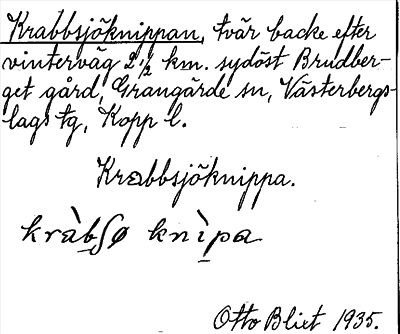 Krabbsjöknippan, tvär backe efter
vinterväg 2 1/2 km. sydöst Brudber-
get gård, Grangärde sn, Västerbergs-
lags tg, Kopp l.
Krabbsjöknippa.
kràb̲ʃø knìp̲a
Otto Blixt 1935.